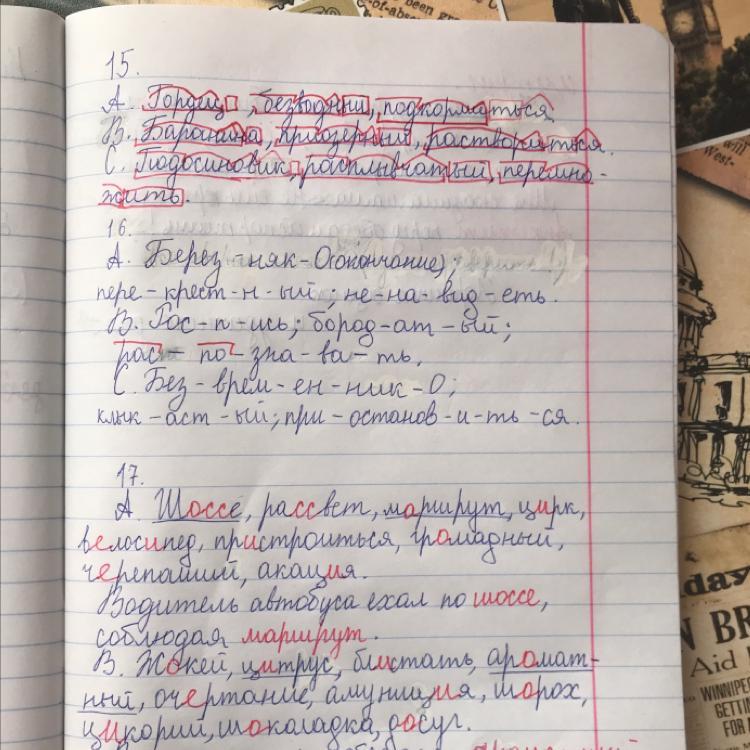 15.
А. Гордец, безводный, подкорматься
В. Баранина, приозерный, раствориться.
С. Подосиновик, расплывчатый, перемно-
жить.
16.
А. Берез-няк-О(окончание);
пере-крест-н-ый; не-на-вид-еть.
В. Рос-п-ись; бород-ат-ый;
рас-по-зна-ва-ть,
С. Без-врем-ен-ник-О;
клык-аст-ый; при-останов-и-ть-ся.
17.
А. Шоссе, рассвет, маршрут, цирк,
велосипед, пристроиться, громадный,
черепаший, акация.
Водитель автобуса ехал по шоссе,
соблюдая маршрут.
В. Жокей, цитрус, блистать, аромат-
ный, очертание, амуниция, шорох,
цикорий, шоколадка, досуг.
WINNIPEG
Aid